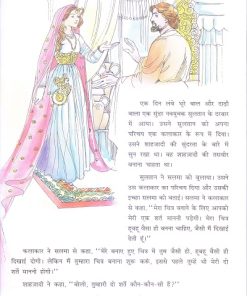 एक दिन लंबे भूरे बाल और दाढ़ी
वाला एक सुंदर नवयुवक सुलतान के दरबार
में आया। उसने सुलतान को अपना
परिचय एक कलाकार के रूप में दिया।
उसने शाहजादी की सुंदरता के बारे में
सुन रखा था। वह शाहजादी की तसवीर
बनाना चाहता था।
सुलतान ने सलमा को बुलाया। उसने
उस कलाकार का परिचय दिया और उसकी
इच्छा सलमा को बताई। सलमा ने कलाकार
से कहा, "मेरा चित्र बनाने के लिए आपको
मेरी एक शर्त माननी पड़ेगी। मेरा चित्र
हूबहू वैसा ही बनना चाहिए, जैसी मैं दिखाई
देती हूँ।"
कलाकार ने सलमा से कहा, "मेरे बनाए हुए चित्र में तुम जैसी हो, हूबहू वैसी ही
दिखाई दोगी। लेकिन मैं तुम्हारा चित्र बनाना शुरू करूँ, इससे पहले तुम्हें भी मेरी दो
शर्तें माननी होंगी।"
शाहजादी ने कहा, "बोलो, तुम्हारी दो शर्तें कौन-कौन सी हैं?"